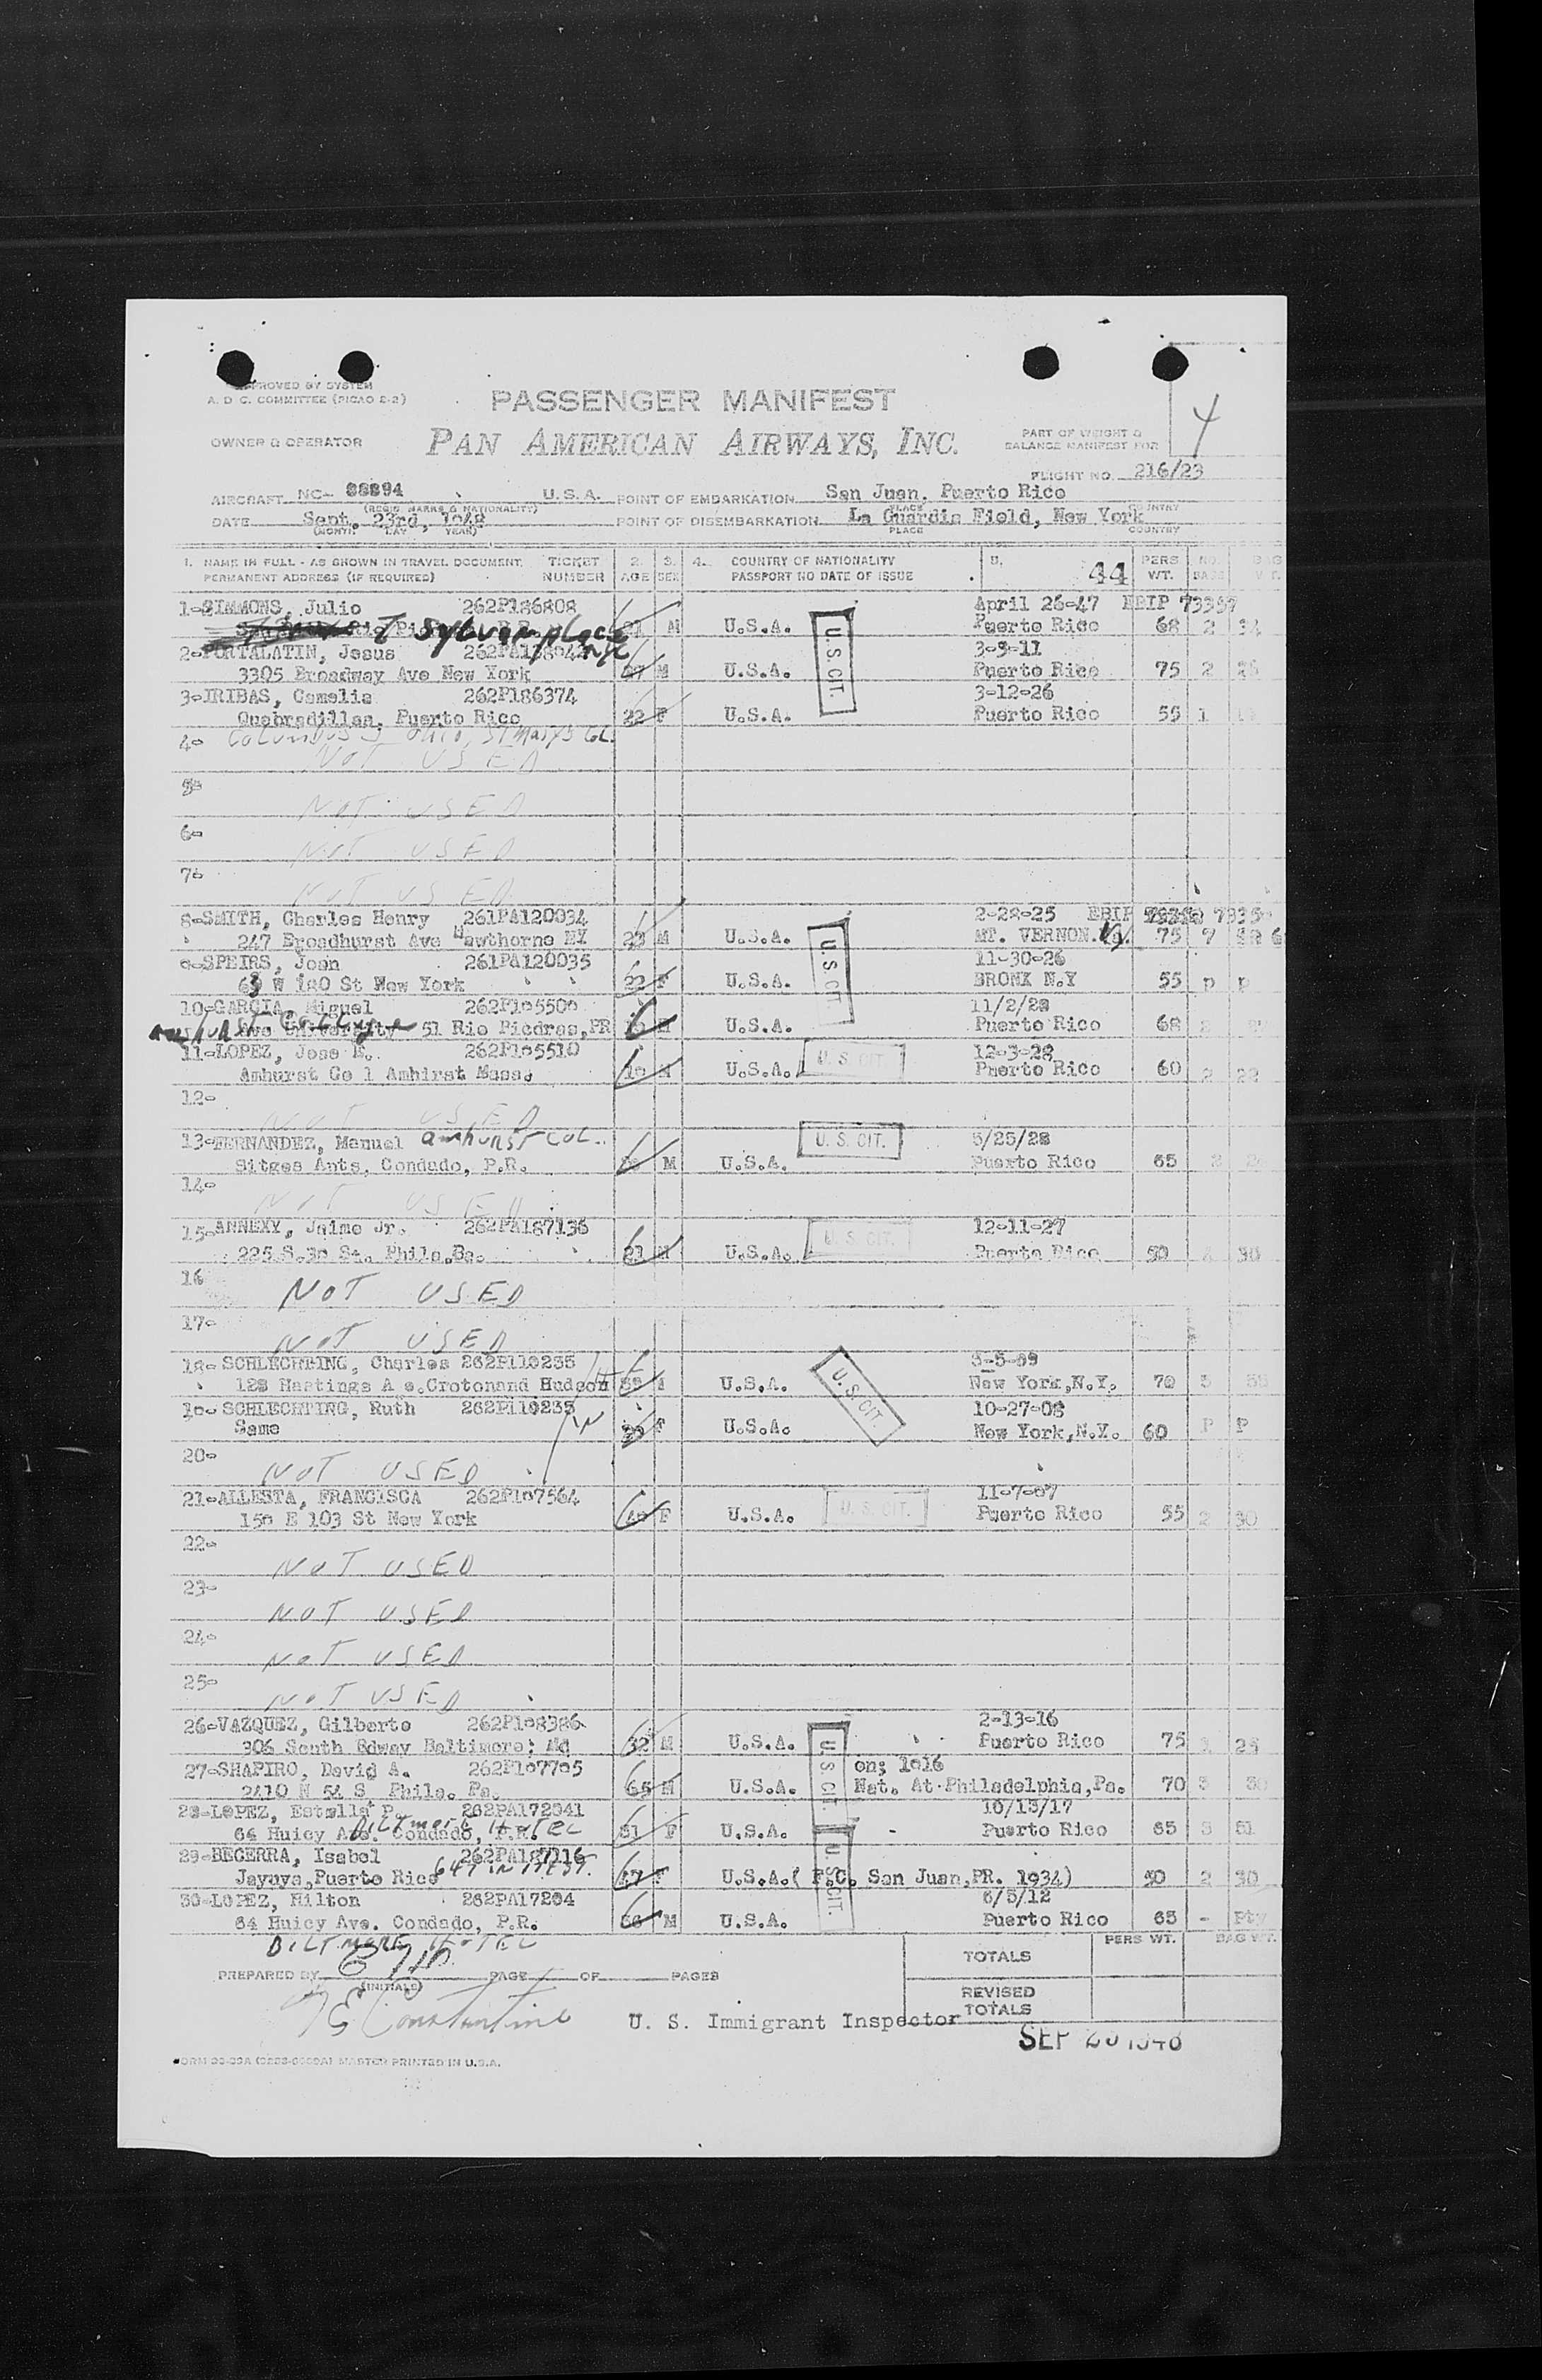 APPROVED BY SYSTEM
A. D. C. COMMITTEE (PICAO E-2)
PASSENGER MANIFEST
4
OWNER & OPERATOR
PAN AMERICAN AIRWAYS, INC.
PART OF WEIGHT &
BALANCE MANIFEST FOR
FLIGHT NO. 216/23
AIRCRAFT NC- 88894 U. S. A. POINT OF EMBARKATION San Juan, Puerto Rico
(REGIS MARKS & NATIONALITY) PLACE COUNTRY
DATE Sept. 23rd, 1948 POINT OF DISEMBARKATION La Guardia Field, New York
(MONTH DAY YEAR) PLACE COUNTRY
1. NAME IN FULL - AS SHOWN IN TRAVEL DOCUMENT TICKET 2. 3. 4. COUNTRY OF NATIONALITY 5. 44 PERS NO. BAG
PERMANENT ADDRESS (IF REQUIRED) NUMBER AGE SEX PASSPORT NO DATE OF ISSUE WT. BAGS WT.
1-SIMMONS, Julio 262P186808 April 26-47 EBIP 73357
7 Sylvan place NYC M U.S.A. U.S. CIT. Puerto Rico 68 2 34
2-PORTALATIN, Jesus 3-3-11
3305 Broadway Ave New York 37 M U.S.A. Puerto Rico 75 2
3-IRIBAS, Camelia 262P186374 3-12-26
Quebradillas, Puerto Rico 22 F U.S.A. Puerto Rico 55 1
4- Columbus Ohio, St Marys Col.
NOT USED
5-
NOT USED
6-
NOT USED
7-
NOT USED
8-SMITH, Charles Henry 261PA120034 2-28-25 EBIP
247 Broadhurst Ave Hawthorne NY 23 M U.S.A. U.S. CIT. MT. VERNON. 75 7
9-SPEIRS, Joan 261PA120035 11-30-26
W 180 St New York 22 F U.S.A. BRONX N.Y 55 p p
10-GARCIA, Miguel 11/2/28
Amhurst College Ave University 51 Rio Piedras, PR U.S.A. Puerto Rico 68 2
11-LOPEZ, Jose 12-3-28
Amhurst Co l Amhirst Mass. U.S.A. U. S. CIT. Puerto Rico 60 2 22
12-
NOT USED
13-FERNANDEZ, Manuel amhurst Col. U. S. CIT. 5/25/28
Sitges Apts, Condado, P.R. M U.S.A. Puerto Rico 65 2
14-
NOT USED
15-ANNEXY, Jaime Jr. 262PA187136 U. S. CIT. 12-11-27
225 S.39 St. Phila.Pa. 21 M U.S.A. Puerto Rico 50 30
16
NOT USED
17-
NOT USED
18- SCHLECHTING, Charles 262P110235
128 Hastings A e.Crotonand Hudson U.S.A. U. S. CIT. New York,N.Y. 70
19- SCHLECHTING, Ruth 262P110235 10-27-08
Same 39 F U.S.A. New York,N.Y. 60 P P
20-
NOT USED
21-ALLESTA, FRANCISCA 262P107564 11-7-07
150 E 103 St New York 40 F U.S.A. U. S. CIT. Puerto Rico 55 2 30
22-
NOT USED
23-
NOT USED
24-
NOT USED
25-
NOT USED
26-VAZQUEZ, Gilberto 262P108386 2-13-16
306 South Bdway Baltimore; Md 32 M U.S.A. U.S. CIT. Puerto Rico 75 25
27-SHAPIRO, David A. 262P107705 on; 1916
2410 N 54 S Phila. Pa. 65 M U.S.A. Nat. At Philadelphia,Pa. 70 3
28-LOPEZ, Estella P. 262PA172941 10/13/17
Biltmore Hotel
64 Huicy Ave. Condado, P.R. 31 F U.S.A. - Puerto Rico 65 3 51
29-BECERRA, Isabel 262PA187116
Jayuya,Puerto Rico F U.S.A.( P.C. San Juan,PR. 1934) 50 2 30
30-LOPEZ, Hilton 262PA17294 6/5/12
64 Huicy Ave. Condado, P.R. 36 M U.S.A. U.S. CIT. Puerto Rico 65 - Pty
BILTMORE HOTEL
PERS WT. BAG WT.
TOTALS
PREPARED BY PAGE OF PAGES
(INITIALS)
REVISED
TOTALS
Constantine U. S. Immigrant Inspector
SEP 1948
FORM MASTER PRINTED IN U.S.A.